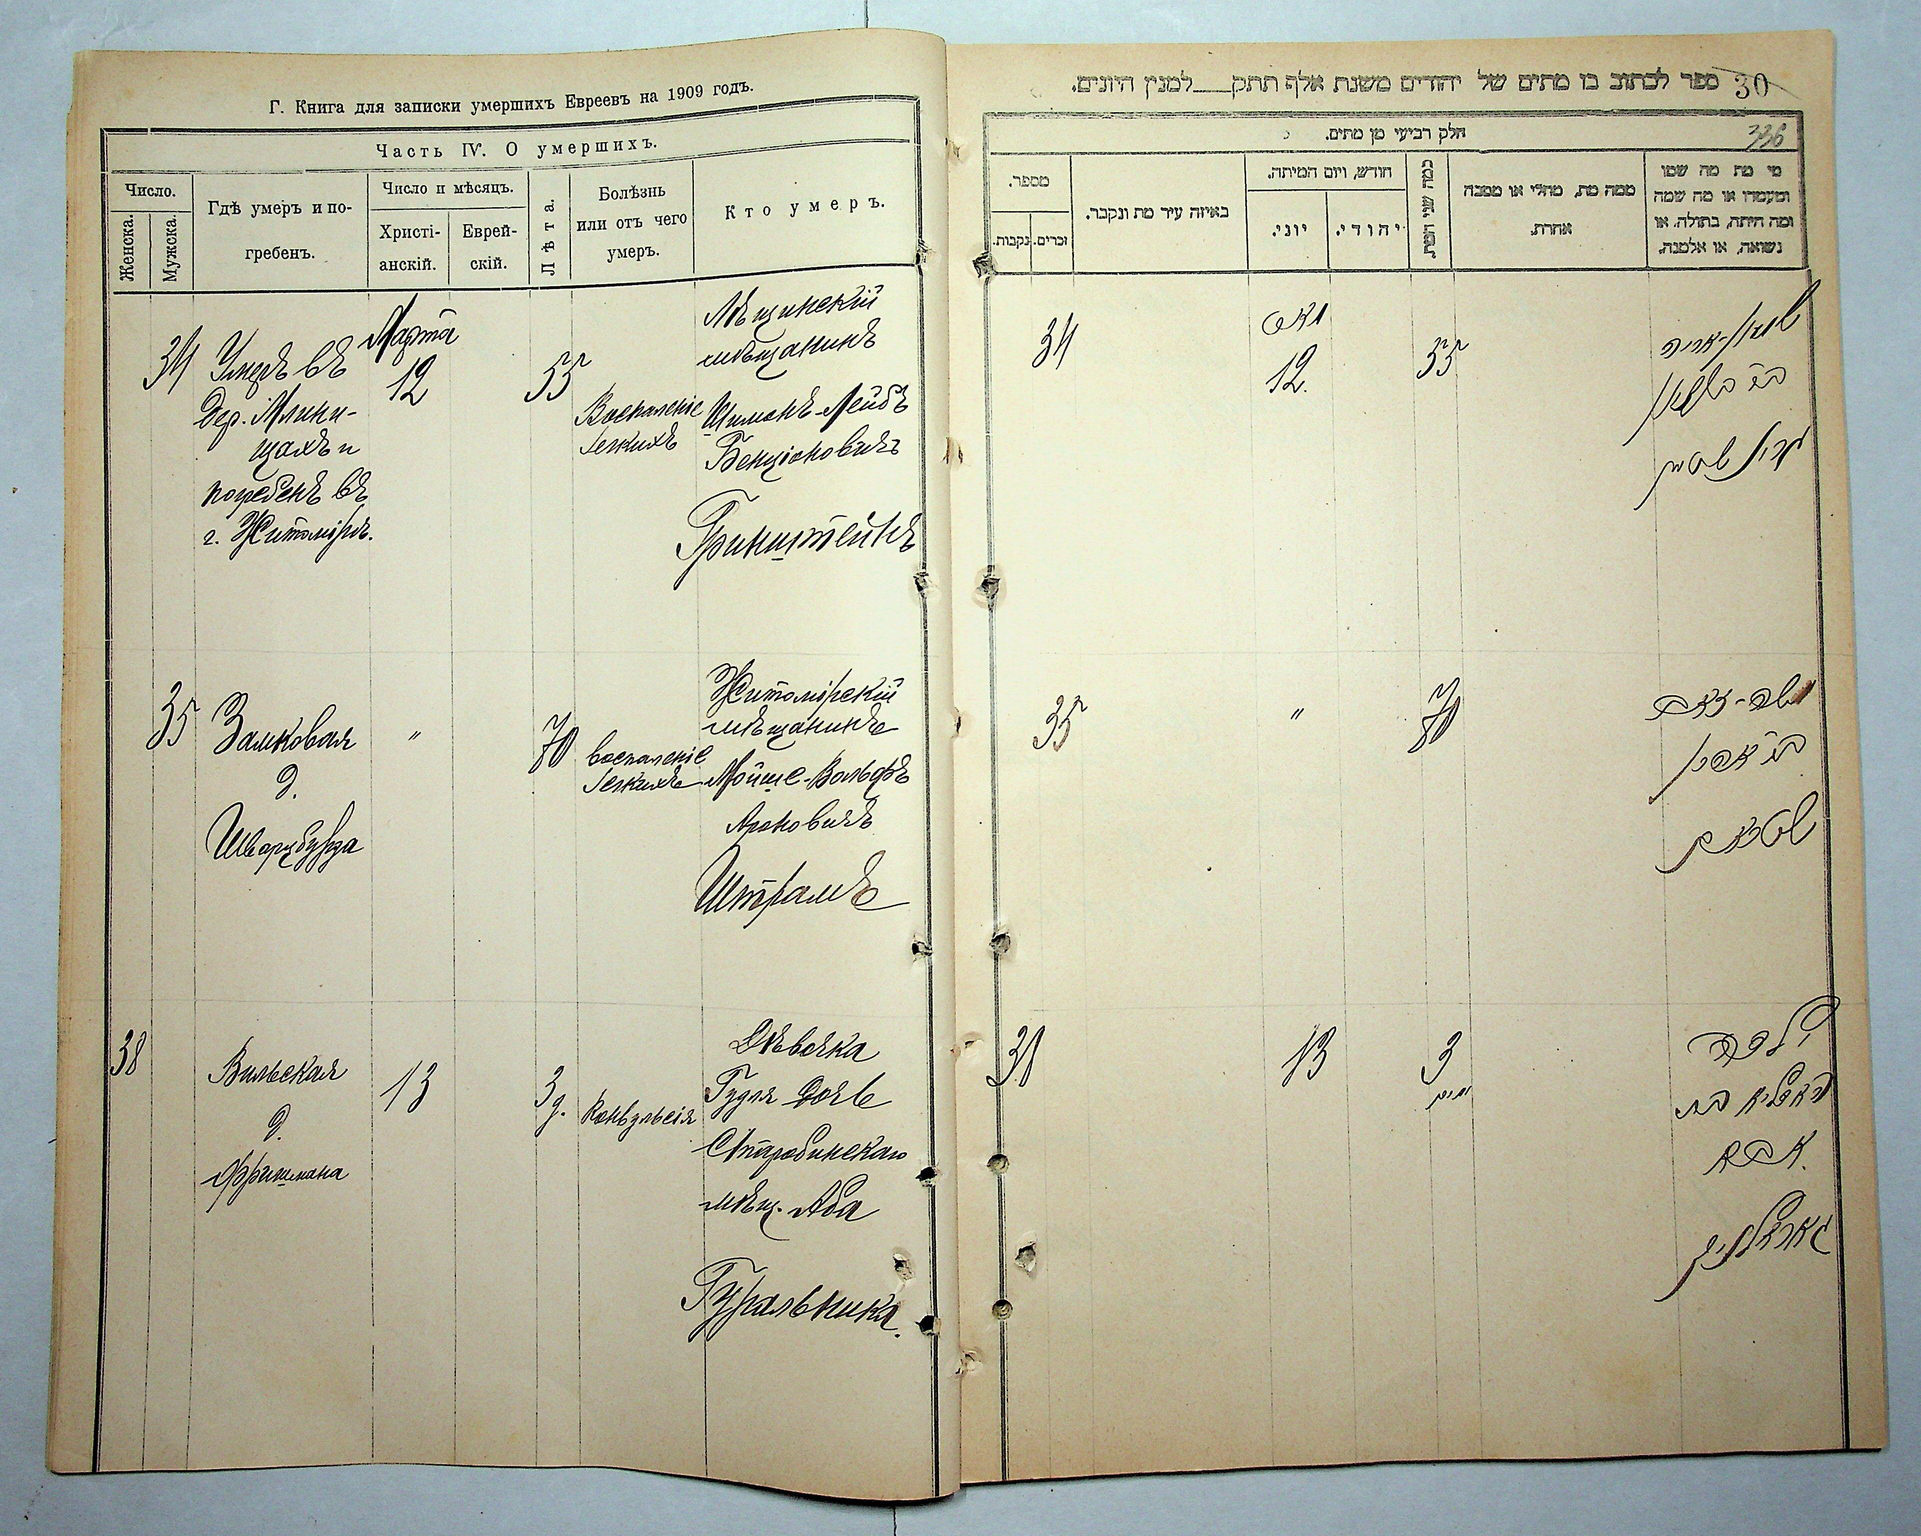 Г. Книга для записки умершихъ Евреевъ на 1909 годъ.
Часть IV. О умершихъ.
Число.
Женска.
Мужска.
Гдѣ умеръ и по-
гребенъ.
Число и мѣсяцъ.
Христі-
анскій.
Еврей-
скій.
Лѣта.
Болѣзнь
или отъ чего
умеръ.
Кто умеръ.
34
Умеръ въ
дер.
щахъ и
погребенъ въ
г. Житомірѣ.
Марта
12
55
Воспаленіе
легкихъ
мѣщанинъ
Шимонъ-Лейбъ
Бенціоновичъ
Гринштейнъ
35
Замковая
д.
Шварцбурда
"
70
воспаленіе
легкихъ
Житомірскій
мѣщанинъ
Мойше-Вольфъ
Ароновичъ
Штрамъ
38
Вильская
д.
Фришмана
13
3
д.
Конвульсія
Дѣвочка
Гудля дочь
Старобинскаго
мѣщ. Аба
Гуральника.
30
ספר לכתוב בו מתים של יהודים משנת אלף תתק___למנין היונים.
336
חלק רביעי מן מתים.
מספר.
נקבות.
זכרים.
באיזה עיר מת ונקבר.
חודש, ויום המיתה.
יוני.
יהודי.
כמה שני המת.
ממה מת, מחלי או מסבה
אחרת.
מי מת מה שמו
ומעמדו או מה שמה
ומה היתה, בתולה, או
נשואה, או אלמנה.
34
מאר
12.
55
שמעון-אריה
גרינשטיין
35
"
70
משה-זאב
ב״ר אהרן
שטראם
38
13
3
ימים
הילדה
בת
אבא
גוראלניק